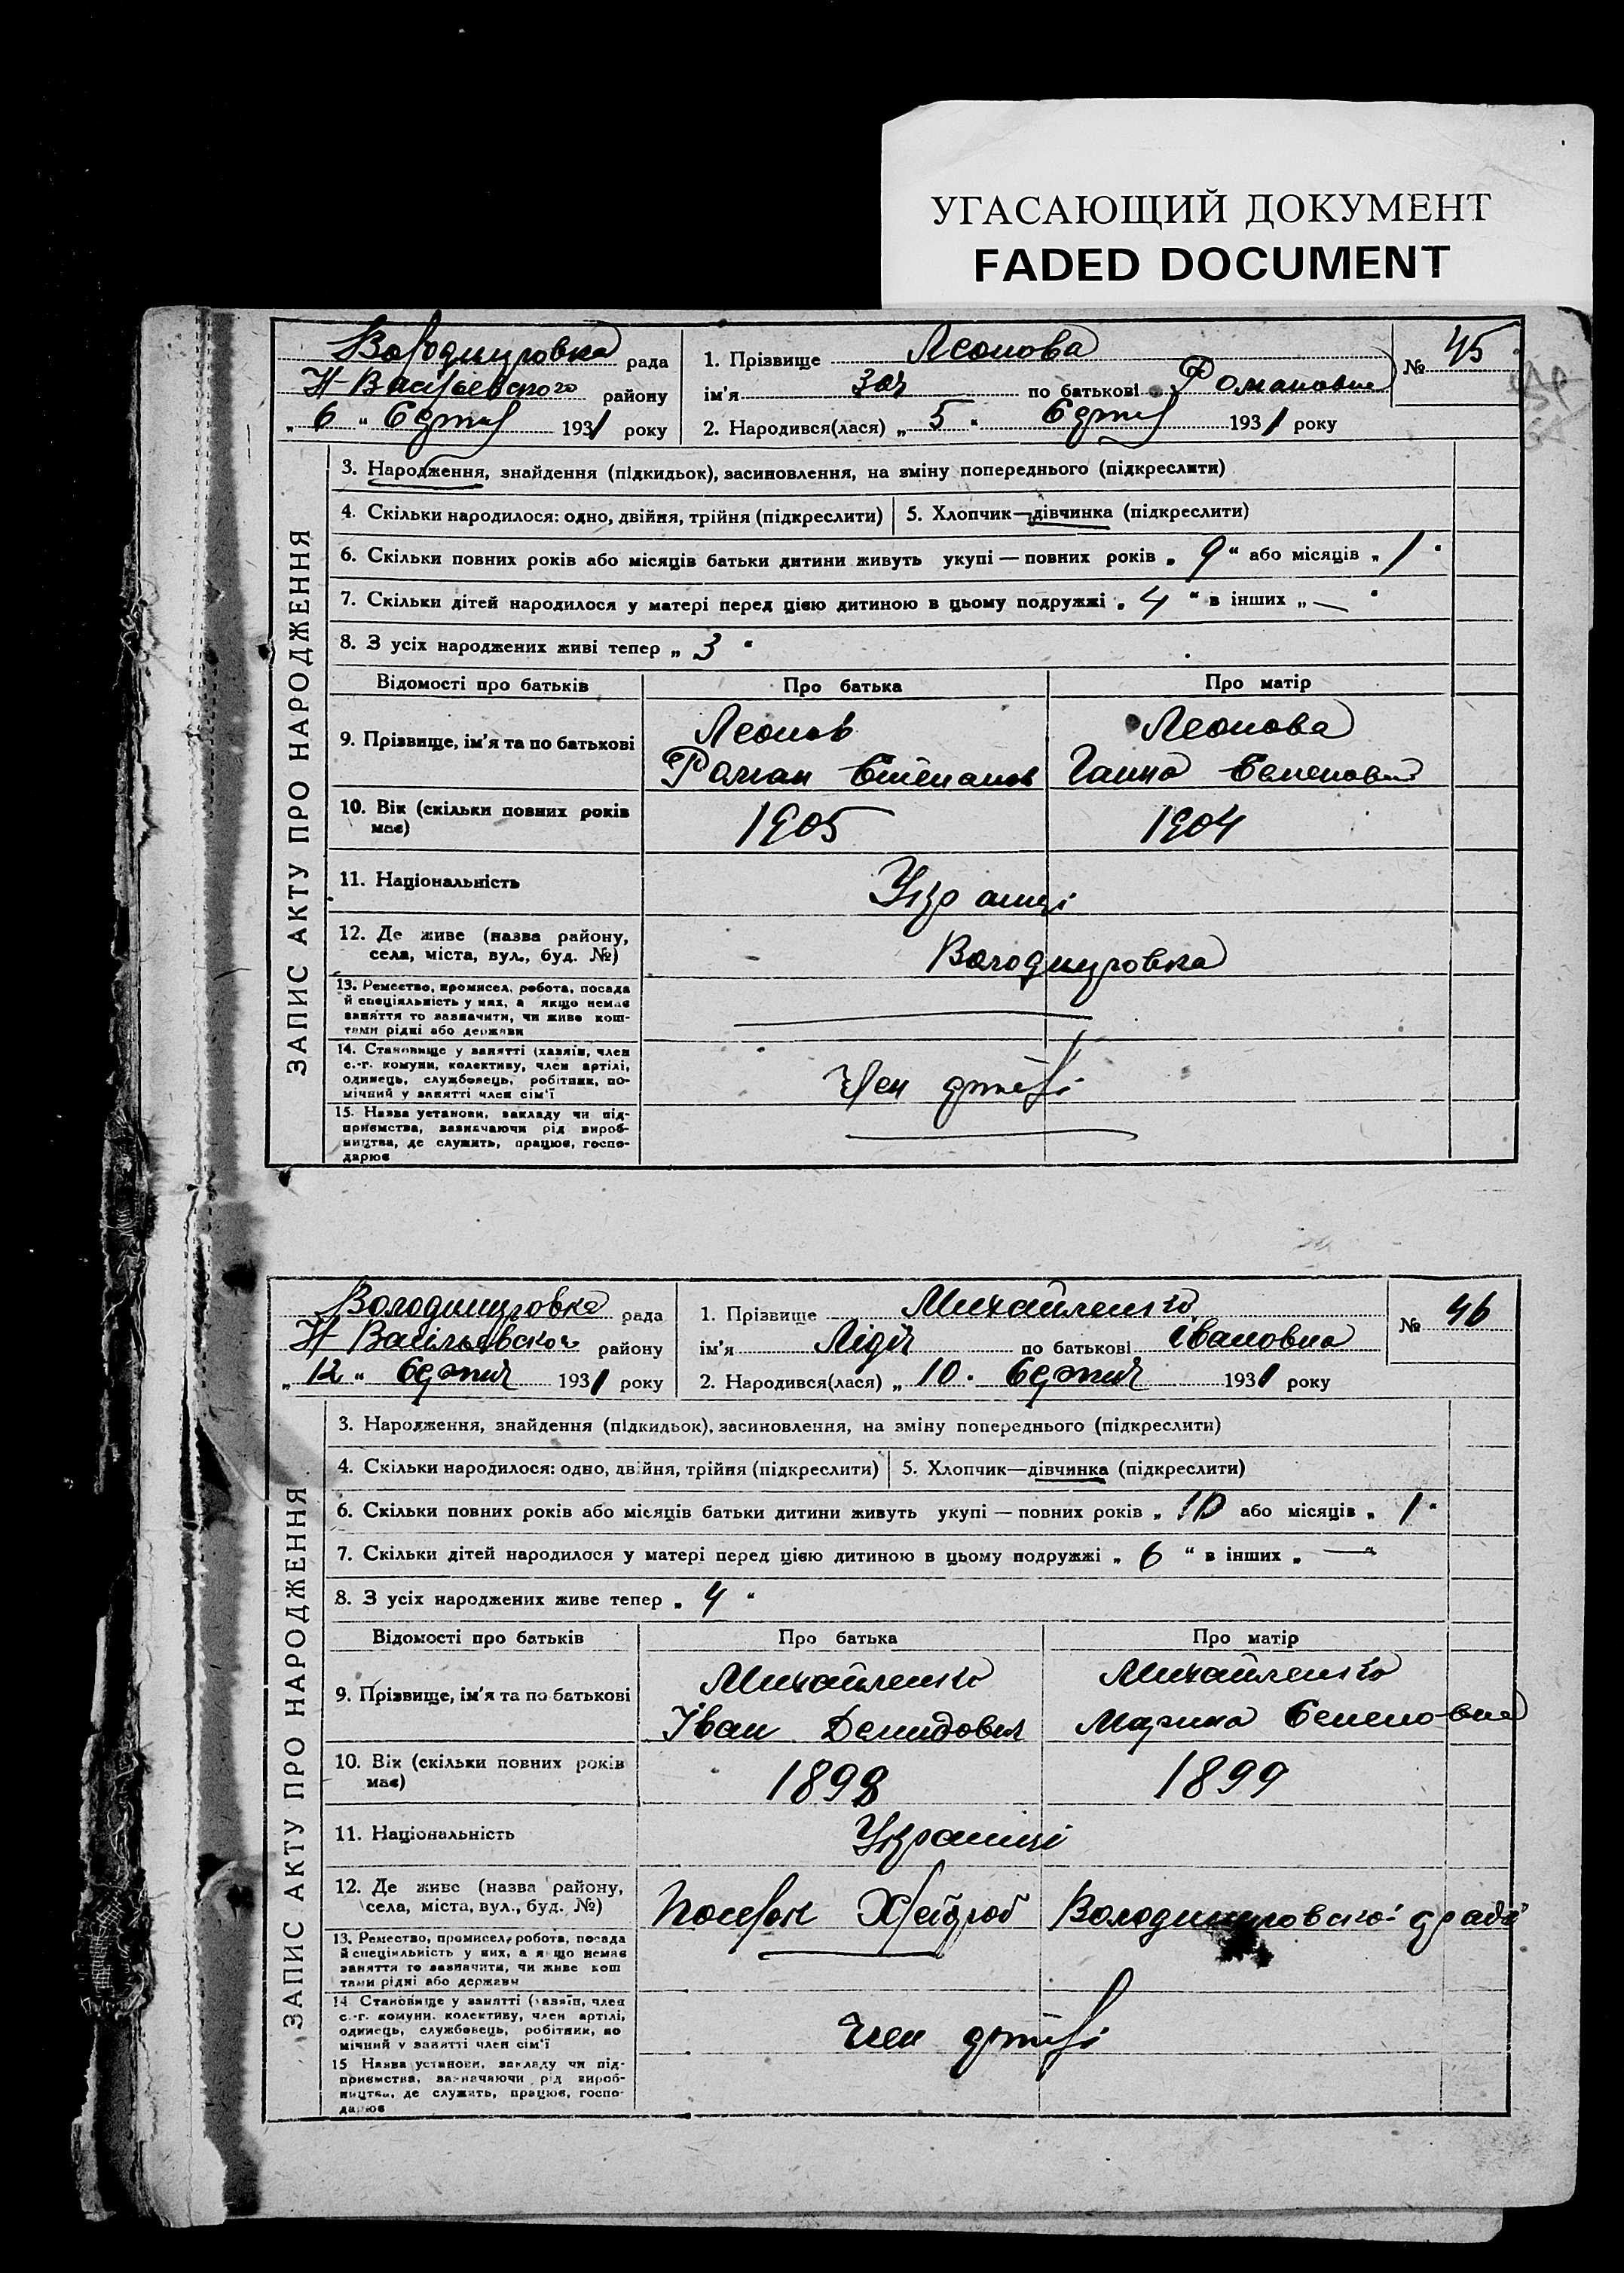 УГАСАЮЩИЙ ДОКУМЕНТ
FADED DOCUMENT
ЗАПИС АКТУ ПРО НАРОДЖЕННЯ
Володимировка рада
Н-Васильевского району
„ 6 “ 193 1 року
1. Прізвище Леонова
ім'я Зоя по батькові Романовна
2. Народився(лася) „ 5 “ 193 1 року
№ 45
3. Народження, знайдення (підкидьок), засиновлення, на зміну попереднього (підкреслити)
4. Скільки народилося: одно, двійня, трійня (підкреслити) 5. Хлопчик—дівчинка (підкреслити)
6. Скільки повних років або місяців батьки дитини живуть укупі — повних років „ 9 “ або місяців „ 1 “
7. Скільки дітей народилося у матері перед цією дитиною в цьому подружжі „ 4 “ в інших „ — “
8. З усіх народжених живі тепер „ 3 “
Відомості про батьків Про батька Про матір
9. Прізвище, ім'я та по батькові
Леонов
Роман Степанов
Леонова
Ганна Семеновна
10. Вік (скільки повних років
має)
1905 1904
11. Національність Українці
12. Де живе (назва району,
села, міста, вул., буд. №)
Володимировка
13. Ремество, промисел, робота, посада
й спеціяльність у них, а якщо немає
заняття то зазначити, чи живе кош-
тами рідні або держави
14. Становище у занятті (хазяїн, член
с.-г. комуни, колективу, член артілі,
одинець, службовець, робітник, по-
мічний у занятті член сім'ї
Член артілі
15. Назва установи, закладу чи під-
приємства, зазначаючи рід вироб-
ництва, де служить, працює, госпо-
дарює
ЗАПИС АКТУ ПРО НАРОДЖЕННЯ
Володимировка рада
Н-Васільевской району
„ 12 “ 193 1 року
1. Прізвище Михайленко
ім'я Лідія по батькові Івановна
2. Народився(лася) „ 10 “ 193 1 року
№ 46
3. Народження, знайдення (підкидьок), засиновлення, на зміну попереднього (підкреслити)
4. Скільки народилося: одно, двійня, трійня (підкреслити) 5. Хлопчик—дівчинка (підкреслити)
6. Скільки повних років або місяців батьки дитини живуть укупі — повних років „ 10 або місяців „ 1 “
7. Скільки дітей народилося у матері перед цією дитиною в цьому подружжі „ 6 “ в інших „ — “
8. З усіх народжених живе тепер „ 4 “
Відомості про батьків Про батька Про матір
9. Прізвище, ім'я та по батькові
Михайленко
Іван Демидович
Михайленко
Марина Семеновна
10. Вік (скільки повних років
має)
1898 1899
11. Національність Українці
12. Де живе (назва району,
села, міста, вул., буд. №)
Посельок Хліброб Володимировской
13. Ремество, промисел, робота, посада
й спеціяльність у них, а якщо немає
заняття то зазначити, чи живе кош
тами рідні або держави
14 Становище у занятті (хазяїн, член
с.-г. комуни, колективу, член артілі,
одинець, службовець, робітник, по
мічний у занятті член сім'ї
Член артілі
15 Назва установи, закладу чи під-
приємства, зазначаючи рід вироб-
ництва, де служить, працює, госпо-
дарює